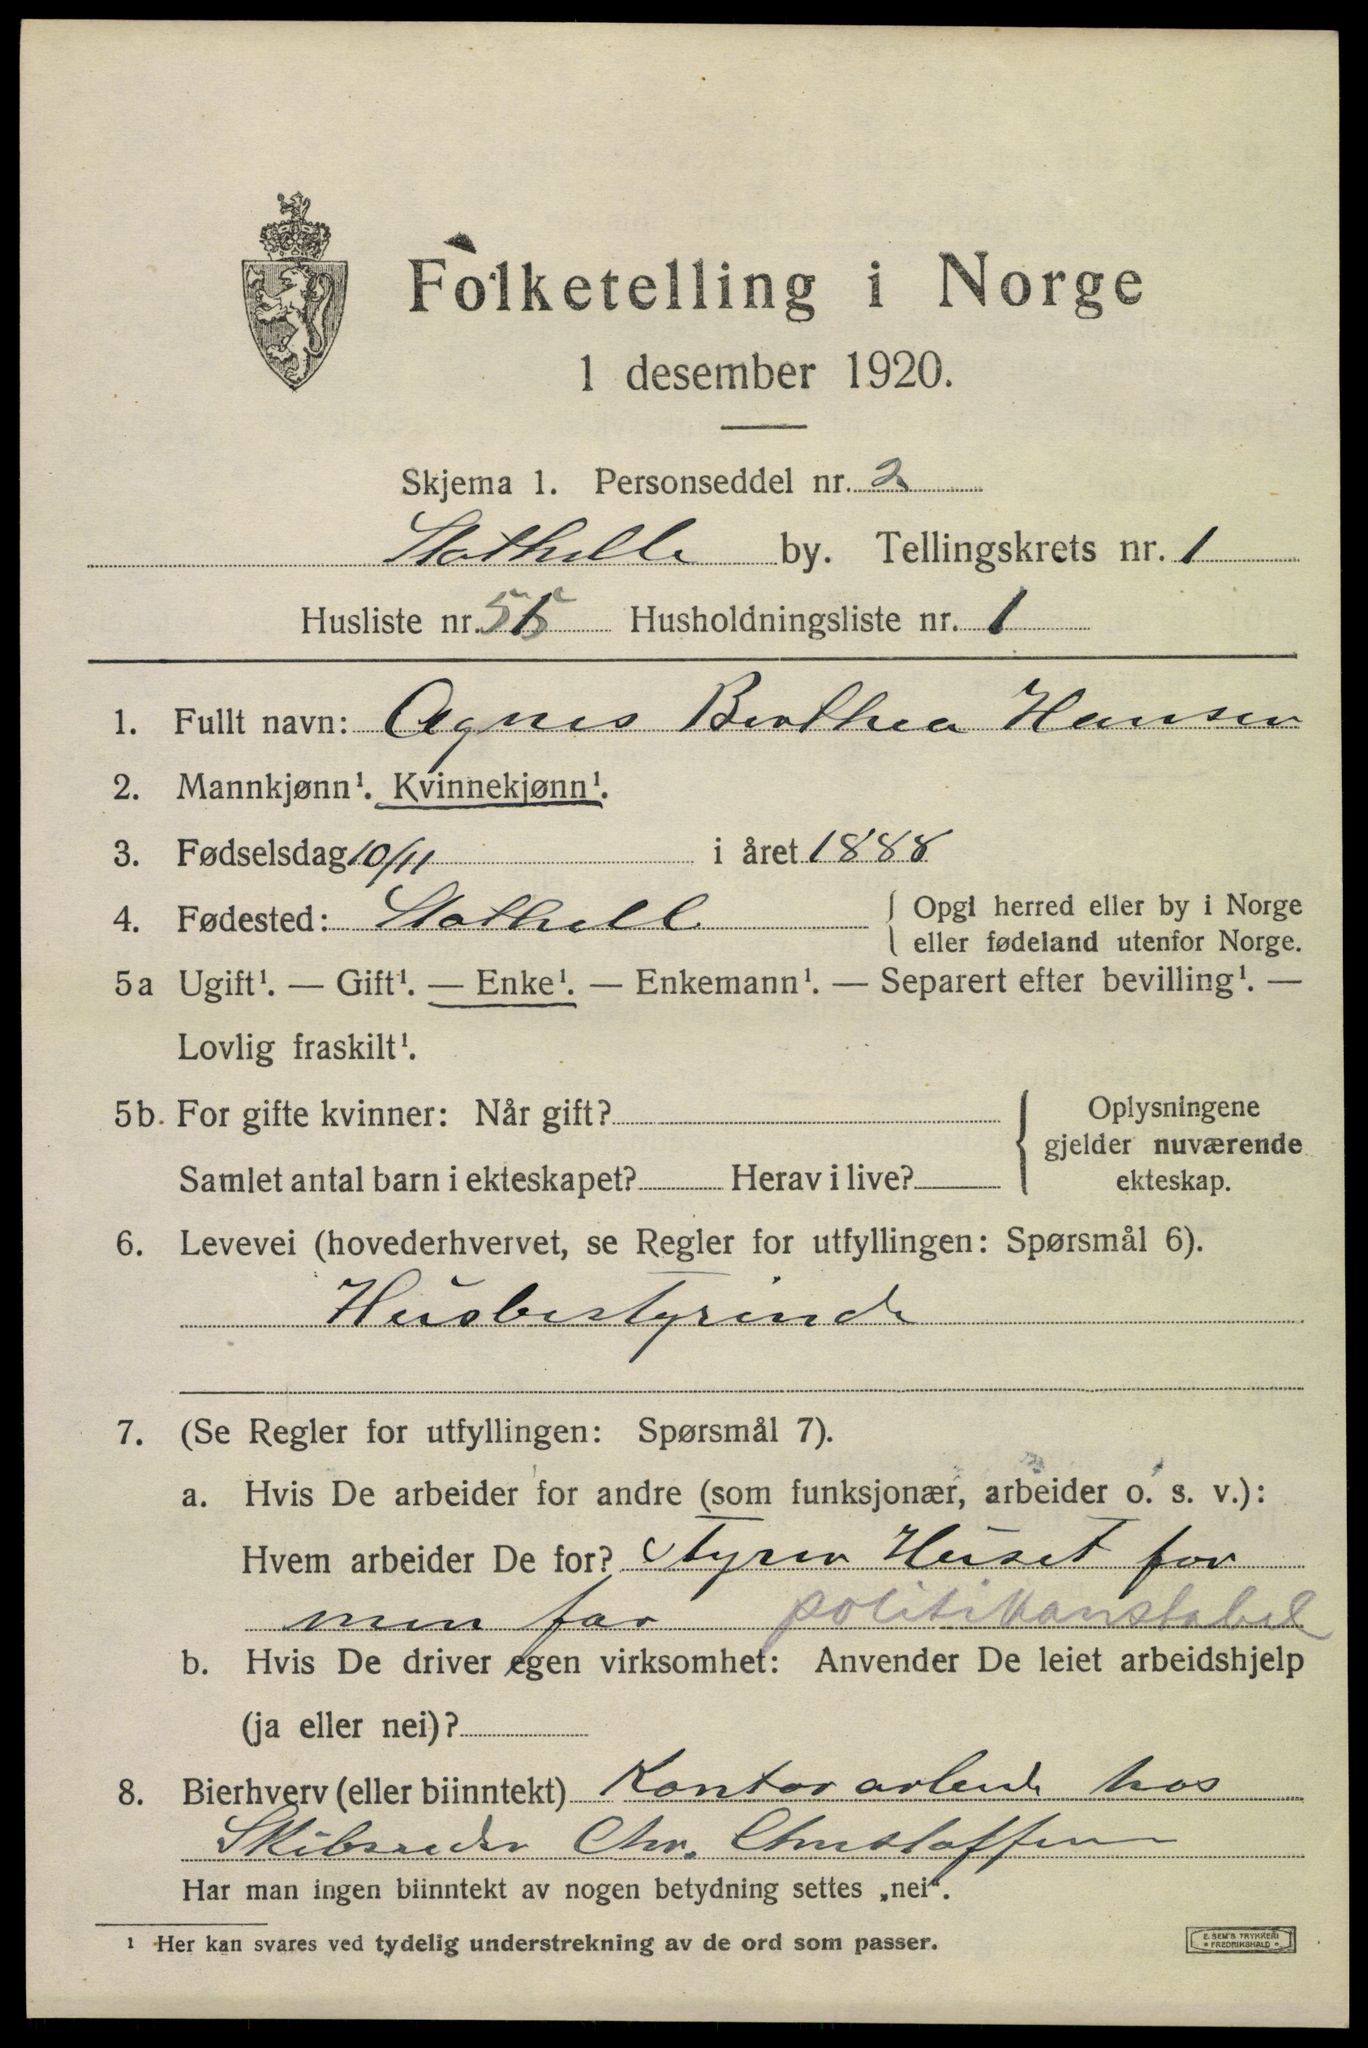 Folketelling i Norge
1 desember 1920.
Skjema 1. Personseddel nr. 2
Stathelle by. Tellingskrets nr. 1
Husliste nr. 55 Husholdningsliste nr. 1
1. Fullt navn: Agnes Berthea Hansen
2. Mannkjønn¹. Kvinnekjønn¹.
3. Fødselsdag 10/11 i året 1888
4. Fødested: Stathelle { Opgi herred eller by i Norge
eller fødeland utenfor Norge.
5a Ugift¹. — Gift¹. — Enke¹. — Enkemann¹. — Separert efter bevilling¹. —
Lovlig fraskilt¹.
5b. For gifte kvinner: Når gift?
Samlet antal barn i ekteskapet? Herav i live?
{ Oplysningene
gjelder nuværende
ekteskap.
6. Levevei (hovederhvervet, se Regler for utfyllingen: Spørsmål 6).
Husbestyrinde
7. (Se Regler for utfyllingen: Spørsmål 7).
a. Hvis De arbeider for andre (som funksjonær, arbeider o. s. v.):
Hvem arbeider De for? Styrer Huset for
min far politikonstabel
b. Hvis De driver egen virksomhet: Anvender De leiet arbeidshjelp
(ja eller nei)?
8. Bierhverv (eller biinntekt) Kontorarbeide hos
Skibsreder Chr. Christoffersen
Har man ingen biinntekt av nogen betydning settes „nei“.
¹ Her kan svares ved tydelig understrekning av de ord som passer.
E. SEM'S TRYKKERI
FREDRIKSHALD